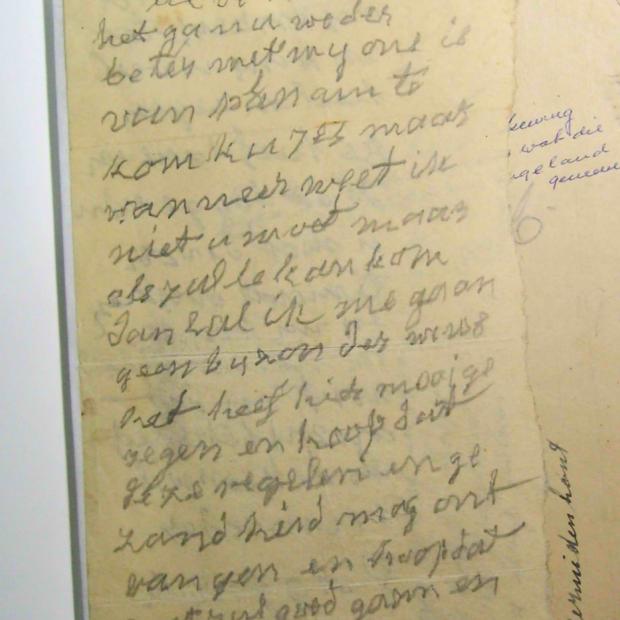 het ga nu weder
beter met my ons is
van plan aim te
kom ku 7 es maar
wanneer weet ik
niet u moet maar
als zulle kan kom
Dan zal ik me gaan
geen byzon Der news
het heef hier mooije
regen en hoop Dat
Deze regelen in ge
zand hied mag ont
vangen en hoop dat
goed gaan en
keuring
wat die
geland